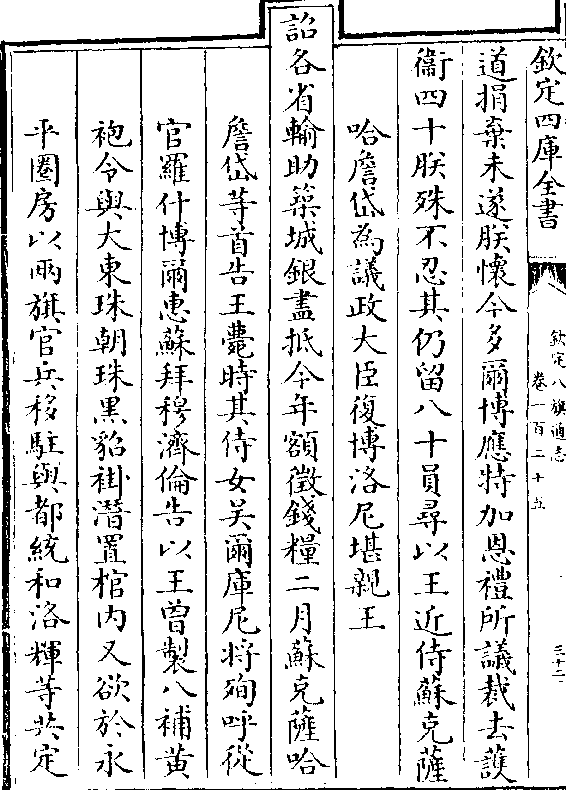 欽定四庫全書
欽定八旗通志
卷一百二十五
三十二
道捐棄未遂朕懷今多爾博應特加恩禮所議裁去護
衞四十朕殊不忍其仍留八十員尋以王近侍蘇克薩
哈詹岱為議政大臣復博洛尼堪親王
詔各省輸助築城銀盡抵今年額徵錢糧二月蘇克薩哈
詹岱等首告王薨時其侍女吴爾庫尼將殉呼從
官羅什博爾惠蘇拜穆濟倫告以王曾製八補黄
袍令與大東珠朝珠黑貂褂潛置棺内又欲於永
平圈房以兩旗官兵移駐與都統和洛輝等共定